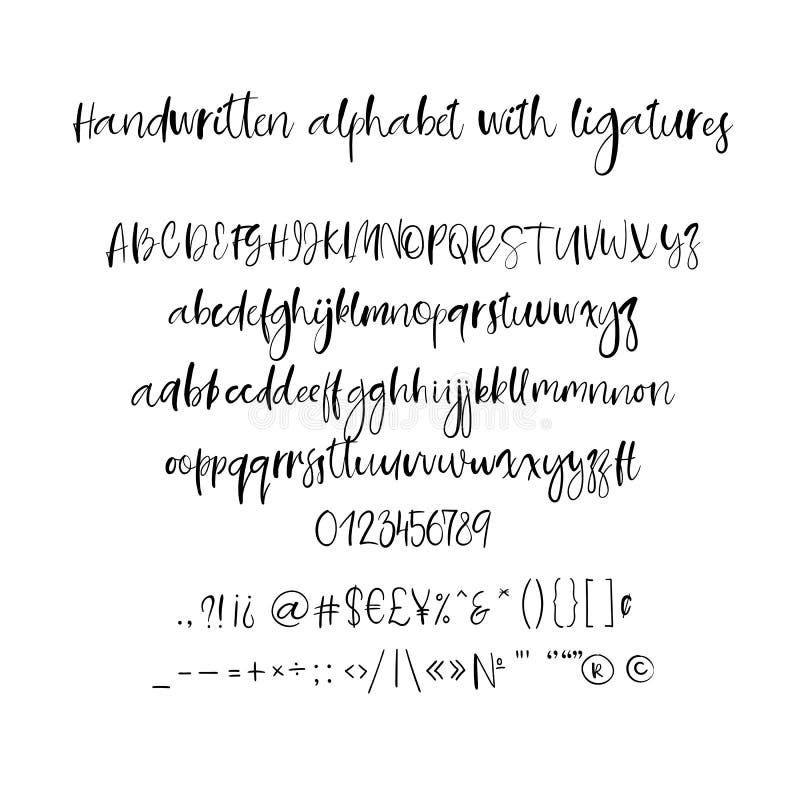 Handwritten alphabet with ligatures
ABCDEFGHIJKLMNOPQRSTUVWXYZ
abcdefghijklmnopqrstuvwxyz
aabbccddeeffgghhiijjkkllmmnnon
ooppqqrrssttuuvvwwxxyyzzft
0123456789
.,?!¡¿ @#$€£¥%^&*(){}[]¢
_–—=+×÷;:<>/|\«»№'"‘’“”®©
dreamstime